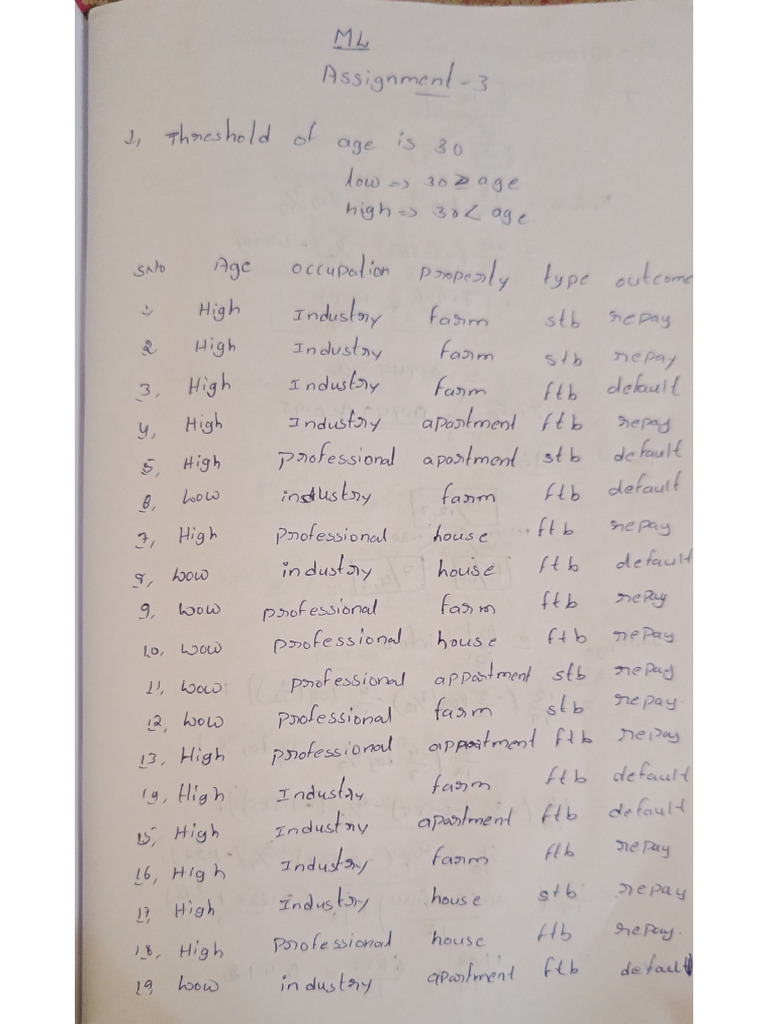 ML
Assignment - 3
1, Threshold of age is 30
low => 30 ≥ age
high => 30 < age
SNO Age occupation property type outcome
1 High Industry farm stb repay
2 High Industry farm stb repay
3, High Industry farm ftb default
4, High Industry apartment ftb repay
5, High professional apartment stb default
6, Low industry farm ftb default
7, High Professional house ftb repay
8, Low industry house ftb default
9, Low professional farm ftb repay
10, Low professional house ftb repay
11, Low professional appartment stb repay
12, Low professional farm stb repay.
13, High professional appartment ftb repay
14, High Industry farm ftb default
15, High Industry apartment ftb default
16, High Industry farm ftb repay
17, High Industry house stb repay
18, High Professional house ftb repay.
19, Low industry apartment ftb default